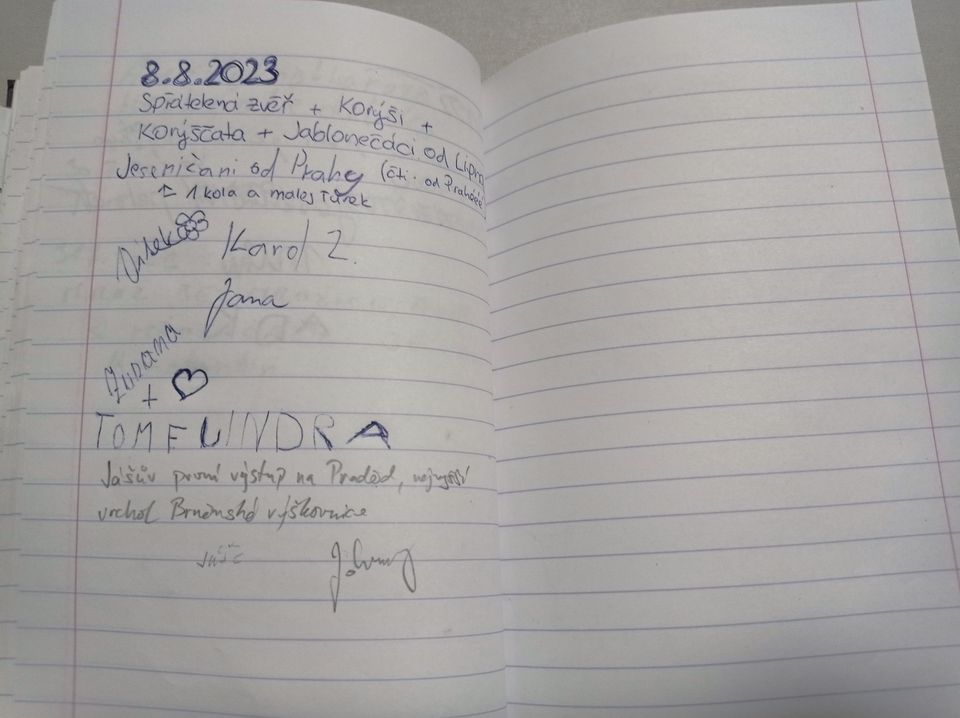 8.8.2023
Spřátelená zvěř + Korýši +
Korýščata + Jablonečáci od Lipna
Jeseničani od Prahy (čti. od Praháéé
1 kola a malej Tůrek
Karol Z.
Jana
Zuzana
+ ♡
TOMF LINDRA
Jášův první výstup na Praděd, nejvyšší
vrchol Brněnské výškovnice
Jáša